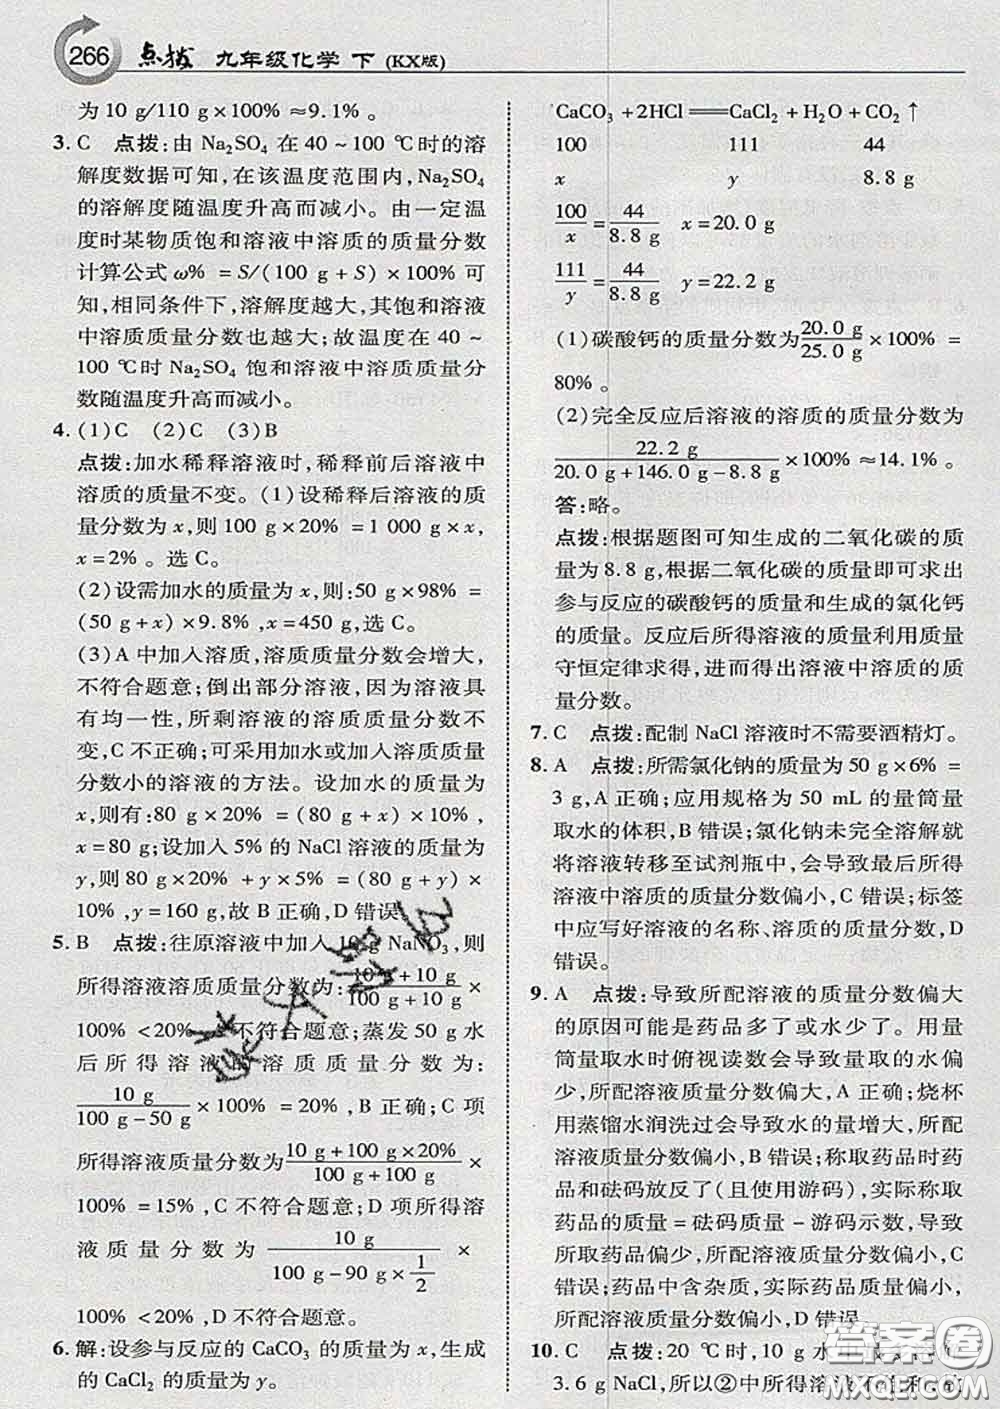 266 点拨 九年级化学 下 (KX版)
为 10 g/110 g×100% ≈9.1% 。
3. C 点拨:由 Na₂SO₄ 在 40 ~ 100 ℃时的溶
解度数据可知,在该温度范围内,Na₂SO₄
的溶解度随温度升高而减小。由一定温
度时某物质饱和溶液中溶质的质量分数
计算公式 ω% = S/(100 g + S) ×100% 可
知,相同条件下,溶解度越大,其饱和溶液
中溶质质量分数也越大;故温度在 40 ~
100 ℃时 Na₂SO₄ 饱和溶液中溶质质量分
数随温度升高而减小。
4. (1)C (2)C (3)B
点拨:加水稀释溶液时,稀释前后溶液中
溶质的质量不变。(1)设稀释后溶液的质
量分数为 x,则 100 g ×20% =1 000 g ×x,
x=2% 。选 C。
(2)设需加水的质量为 x,则:50 g ×98% =
(50 g+x) ×9.8% ,x=450 g,选 C。
(3)A 中加入溶质,溶质质量分数会增大,
不符合题意;倒出部分溶液,因为溶液具
有均一性,所剩溶液的溶质质量分数不
变,C 不正确;可采用加水或加入溶质质量
分数小的溶液的方法。设加水的质量为
x,则有:80 g ×20% = (80 g + x) ×10% ,
x=80 g;设加入 5%的 NaCl 溶液的质量为
y,则 80 g×20% +y×5% = (80 g+y) ×
10% ,y=160 g,故 B 正确,D 错误。
5. B 点拨:往原溶液中加入 10 g NaNO₃,则
所得溶液溶质质量分数为: (10 g+10 g)/(100 g+10 g) ×
100% <20% ,A 不符合题意;蒸发 50 g 水
后所得溶液的溶质质量分数为:
10 g/(100 g-50 g) ×100% =20% ,B 正确;C 项
所得溶液质量分数为 (10 g+100 g×20%)/(100 g+100 g) ×
100% =15% ,C 不符合题意;D 项所得溶
液质量分数为 10 g/(100 g-90 g×1/2) ×
100% <20% ,D 不符合题意。
6. 解:设参与反应的 CaCO₃ 的质量为 x,生成
的 CaCl₂ 的质量为 y。
CaCO₃ +2HCl ══ CaCl₂ +H₂O+CO₂ ↑
100 111 44
x y 8.8 g
100/x = 44/8.8 g x=20.0 g
111/y = 44/8.8 g y=22.2 g
(1)碳酸钙的质量分数为 20.0 g/25.0 g ×100% =
80% 。
(2)完全反应后溶液的溶质的质量分数为
22.2 g/(20.0 g+146.0 g-8.8 g) ×100% ≈14.1% 。
答:略。
点拨:根据题图可知生成的二氧化碳的质
量为 8.8 g,根据二氧化碳的质量即可求出
参与反应的碳酸钙的质量和生成的氯化钙
的质量。反应后所得溶液的质量利用质量
守恒定律求得,进而得出溶液中溶质的质
量分数。
7. C 点拨:配制 NaCl 溶液时不需要酒精灯。
8. A 点拨:所需氯化钠的质量为 50 g×6% =
3 g,A 正确;应用规格为 50 mL 的量筒量
取水的体积,B 错误;氯化钠未完全溶解就
将溶液转移至试剂瓶中,会导致最后所得
溶液中溶质的质量分数偏小,C 错误;标签
中应写好溶液的名称、溶质的质量分数,D
错误。
9. A 点拨:导致所配溶液的质量分数偏大
的原因可能是药品多了或水少了。用量
筒量取水时俯视读数会导致量取的水偏
少,所配溶液质量分数偏大,A 正确;烧杯
用蒸馏水润洗过会导致水的量增大,所配
溶液质量分数偏小,B 错误;称取药品时药
品和砝码放反了(且使用游码),实际称取
药品的质量 = 砝码质量 - 游码示数,导致
所取药品偏少,所配溶液质量分数偏小,C
错误;药品中含杂质,实际药品质量偏小,
所配溶液质量分数偏小,D 错误。
10. C 点拨:20 ℃时,10 g 水中最多溶解
3.6 g NaCl,所以②中所得溶液不饱和,故
答案圈
MXQE.COM